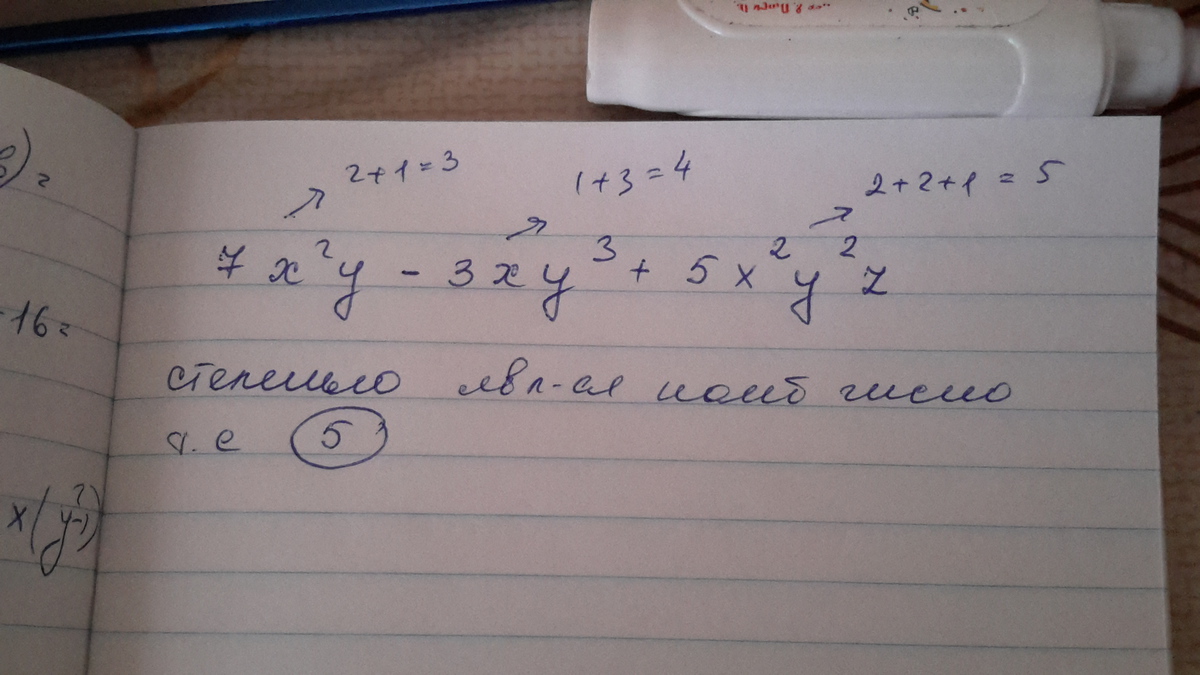 2+1=3
1+3=4
2+2+1=5
7x²y - 3xy³ + 5x²y²z
степенью явл-ся наиб число
т.е 5
-16=
x(y²-1)